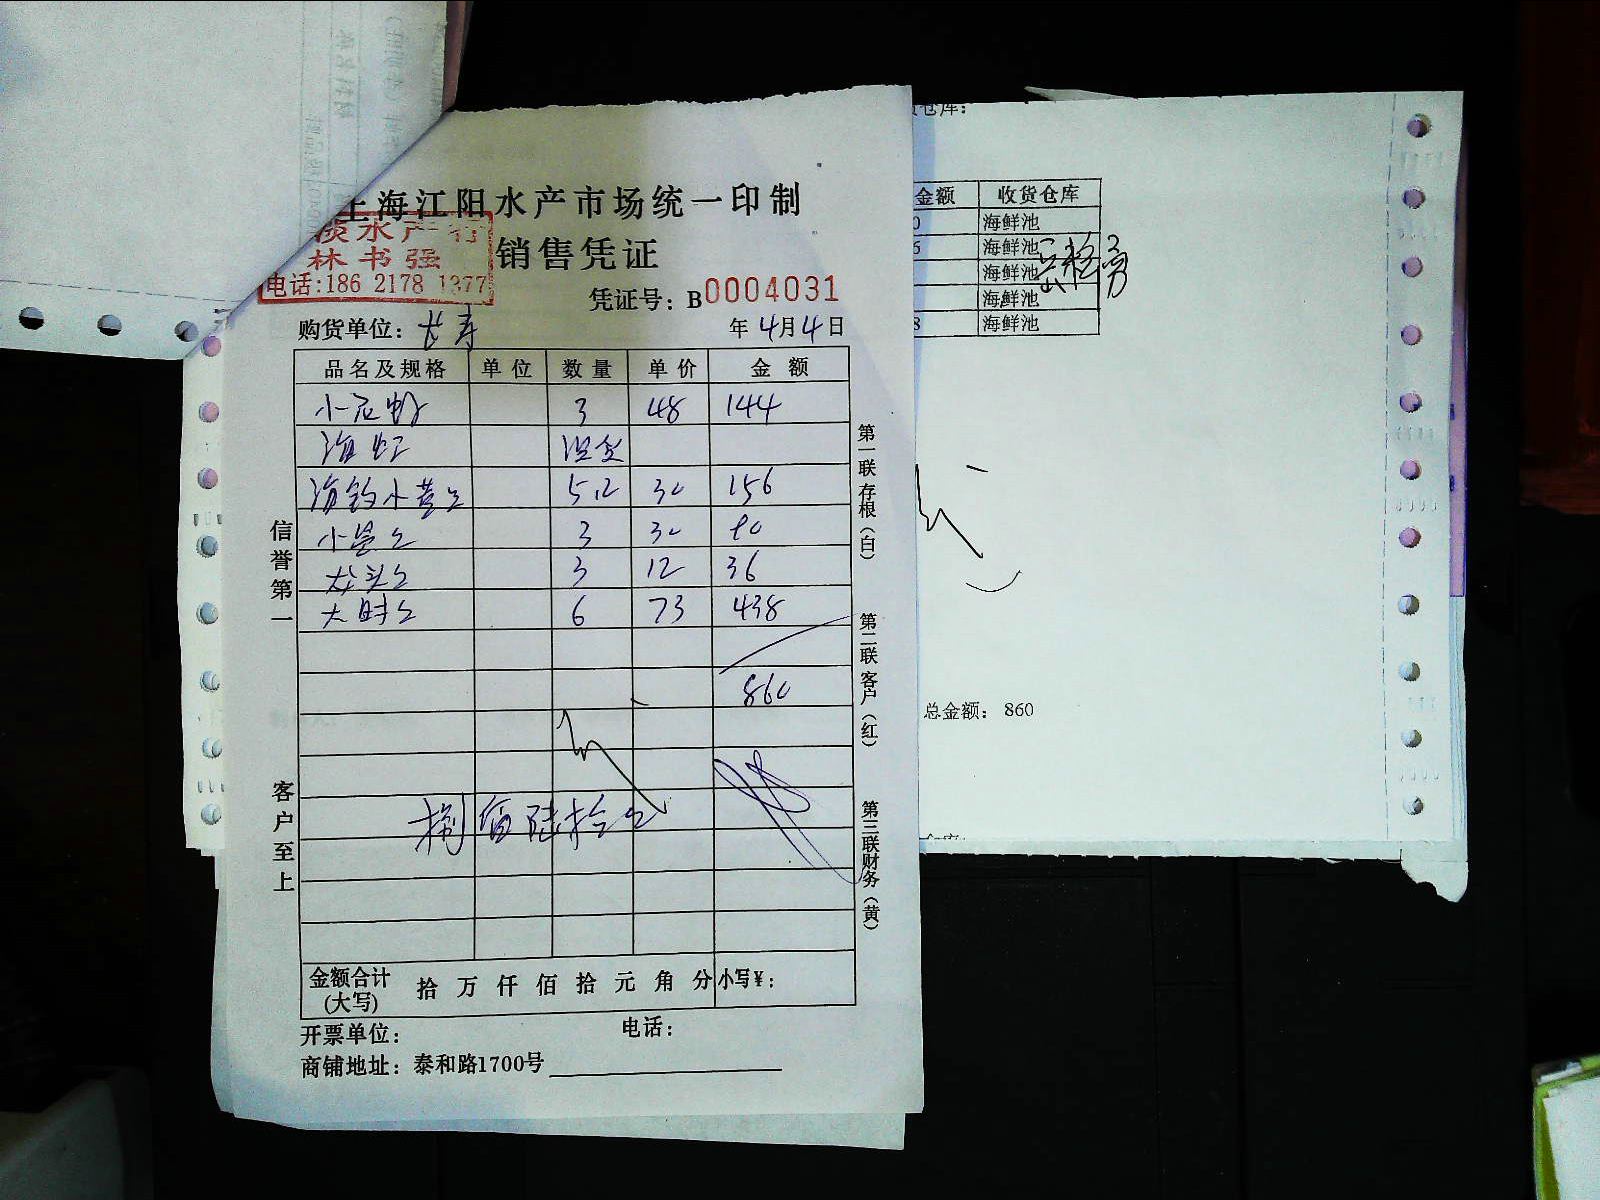 上海江阳水产市场统一印制
淡水产行
林书强
电话:186 2178 1377
销售凭证
凭证号：B0004031
购货单位：长寿
年4月4日
品名及规格 单位 数量 单价 金额
3 48 144
海虹 没发
海钓小黄 5.2 30 156
3 30 90
龙头 3 12 36
6 73 438
860
捌佰陆拾元
金额合计(大写) 拾 万 仟 佰 拾 元 角 分 小写￥：
开票单位： 电话：
商铺地址：泰和路1700号
信誉第一
客户至上
第一联 存根（白）
第二联 客户（红）
第三联 财务（黄）
货仓库：
金额 收货仓库
0 海鲜池
6 海鲜池
海鲜池
海鲜池
8 海鲜池
总金额： 860